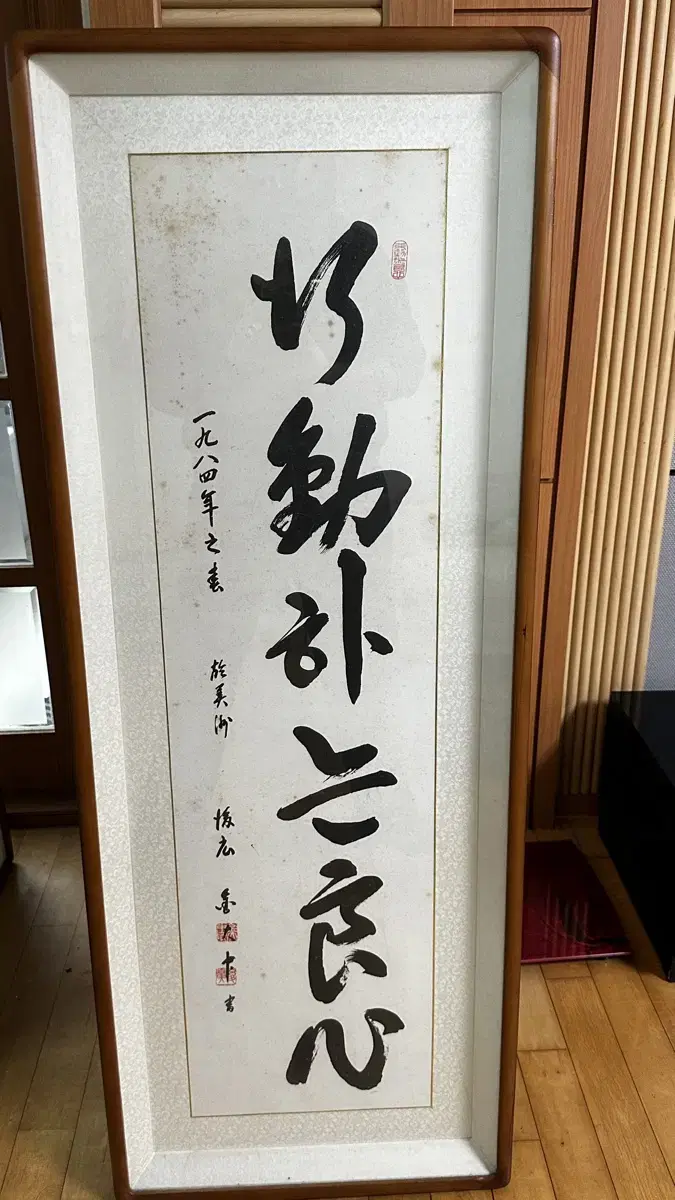 行動하는良心
一九八四年之春 於美洲 後広 金大中 書